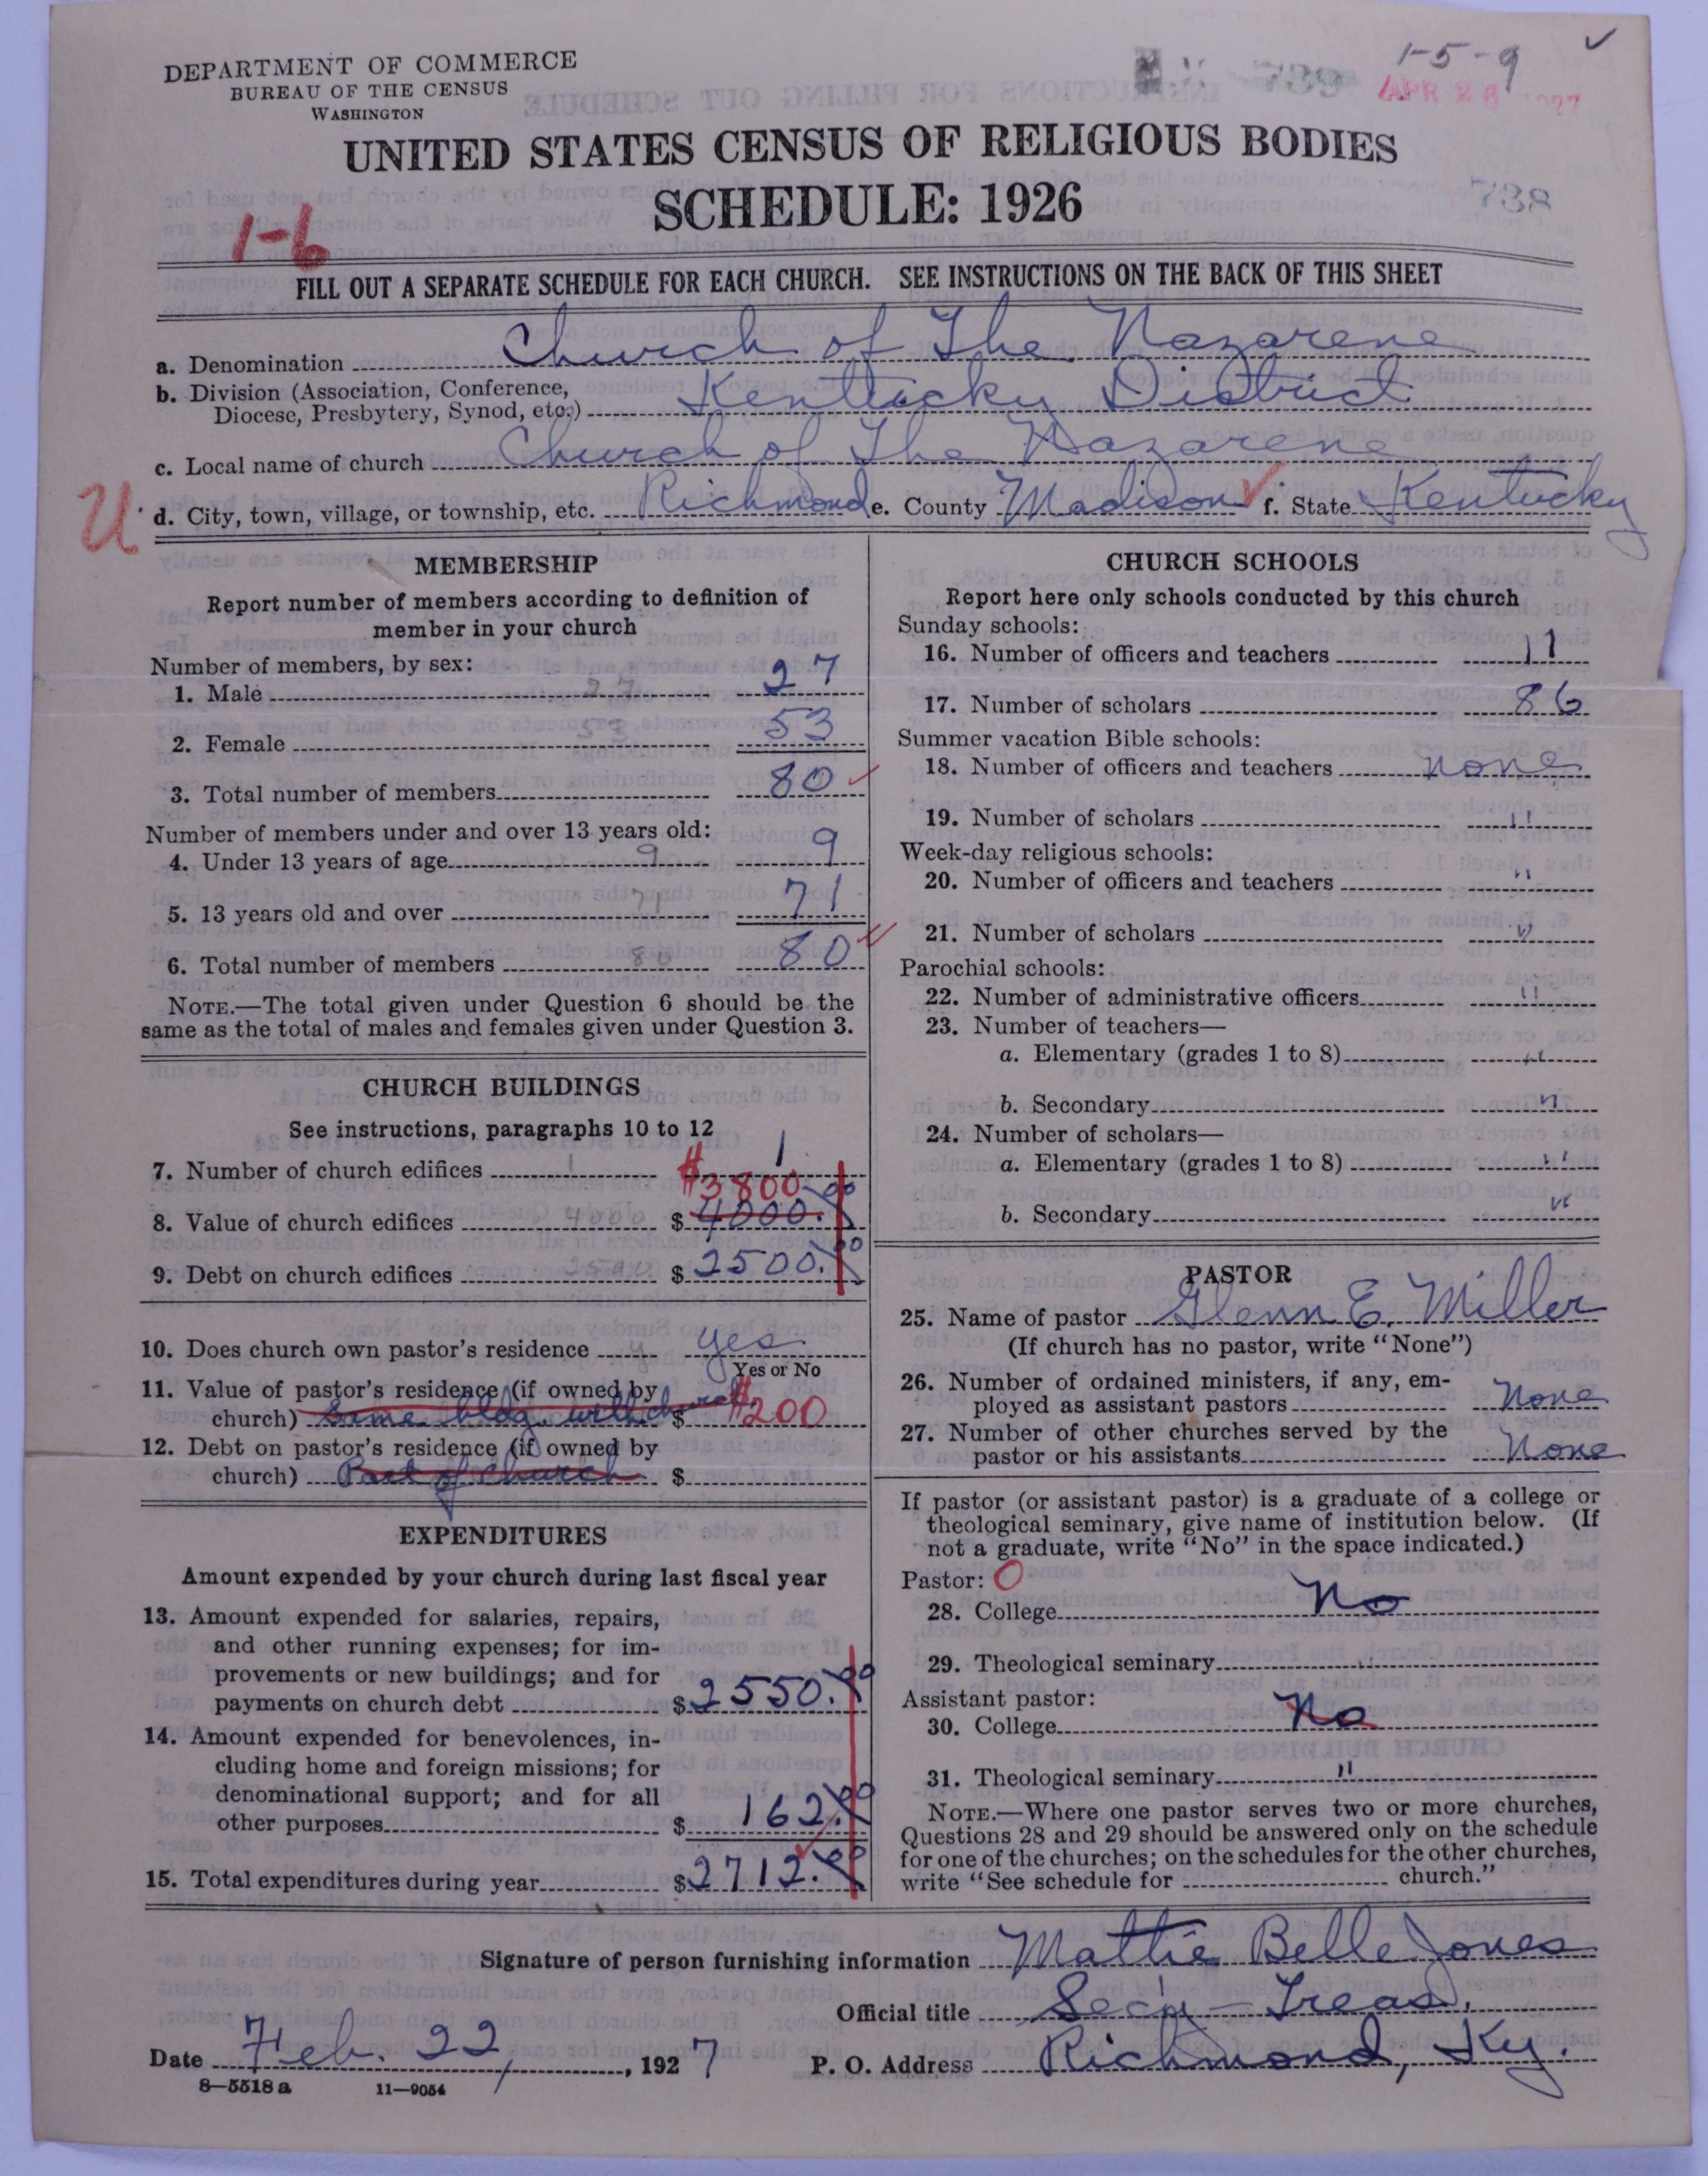 DEPARTMENT OF COMMERCE
BUREAU OF THE CENSUS
WASHINGTON
1-5-9 ✓
739
APR 28 1927
UNITED STATES CENSUS OF RELIGIOUS BODIES
SCHEDULE: 1926
738
1-6
FILL OUT A SEPARATE SCHEDULE FOR EACH CHURCH. SEE INSTRUCTIONS ON THE BACK OF THIS SHEET
a. Denomination Church of The Nazarene
b. Division (Association, Conference,
Diocese, Presbytery, Synod, etc.) Kentucky District
c. Local name of church Church of The Nazarene
U d. City, town, village, or township, etc. Richmond e. County Madison ✓ f. State Kentucky
MEMBERSHIP
Report number of members according to definition of
member in your church
Number of members, by sex:
1. Male 27 27
2. Female 53 53
3. Total number of members 80 ✓
Number of members under and over 13 years old:
4. Under 13 years of age 9 9
5. 13 years old and over 71 71
6. Total number of members 80 80
NOTE.—The total given under Question 6 should be the
same as the total of males and females given under Question 3.
CHURCH BUILDINGS
See instructions, paragraphs 10 to 12
7. Number of church edifices 1 1
$3800
8. Value of church edifices 4000 $ 4000.00
9. Debt on church edifices 2500 $ 2500.00
10. Does church own pastor's residence y yes
Yes or No
11. Value of pastor's residence (if owned by
church) Same bldg. with church $ $200
12. Debt on pastor's residence (if owned by
church) Part of church $
EXPENDITURES
Amount expended by your church during last fiscal year
13. Amount expended for salaries, repairs,
and other running expenses; for im-
provements or new buildings; and for
payments on church debt $ 2550.00
14. Amount expended for benevolences, in-
cluding home and foreign missions; for
denominational support; and for all
other purposes $ 162.00
15. Total expenditures during year $ 2712.00
CHURCH SCHOOLS
Report here only schools conducted by this church
Sunday schools:
16. Number of officers and teachers 11
17. Number of scholars 86
Summer vacation Bible schools:
18. Number of officers and teachers none
19. Number of scholars "
Week-day religious schools:
20. Number of officers and teachers "
21. Number of scholars "
Parochial schools:
22. Number of administrative officers "
23. Number of teachers—
a. Elementary (grades 1 to 8) "
b. Secondary "
24. Number of scholars—
a. Elementary (grades 1 to 8) "
b. Secondary "
PASTOR
25. Name of pastor Glenn E. Miller
(If church has no pastor, write "None")
26. Number of ordained ministers, if any, em-
ployed as assistant pastors None
27. Number of other churches served by the
pastor or his assistants None
If pastor (or assistant pastor) is a graduate of a college or
theological seminary, give name of institution below. (If
not a graduate, write "No" in the space indicated.)
Pastor: 0
28. College No
29. Theological seminary "
Assistant pastor:
30. College No
31. Theological seminary "
NOTE.—Where one pastor serves two or more churches,
Questions 28 and 29 should be answered only on the schedule
for one of the churches; on the schedules for the other churches,
write "See schedule for church."
Signature of person furnishing information Mattie Belle Jones
Official title Sec'y - Treas.
Date Feb. 22, , 1927 P. O. Address Richmond, Ky.
8—5518 a 11—9054